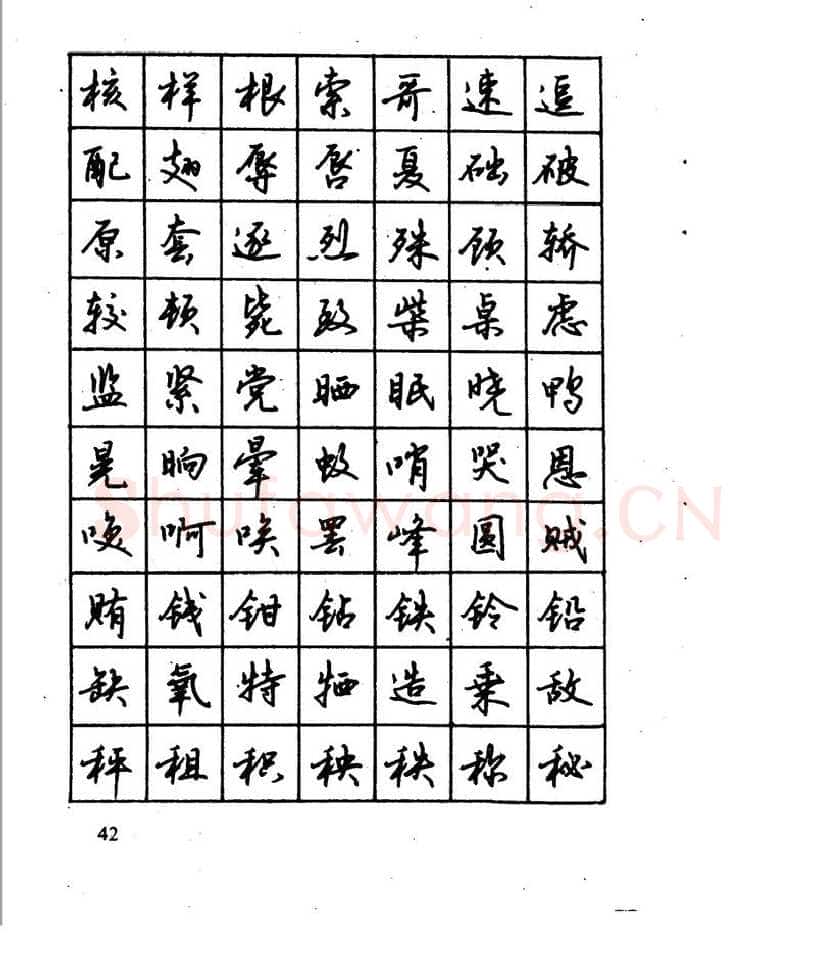 核 样 根 索 哥 速 逗
配 翅 辱 唇 夏 础 破
原 套 逐 烈 殊 顾 轿
较 顿 毙 致 柴 桌 虑
监 紧 党 晒 眠 晓 鸭
晃 晌 晕 蚊 哨 哭 恩
唤 啊 唉 罢 峰 圆 贼
贿 钱 钳 钻 铁 铃 铅
缺 氧 特 牺 造 乘 敌
秤 租 积 秧 秩 称 秘
Shufawang.CN
42